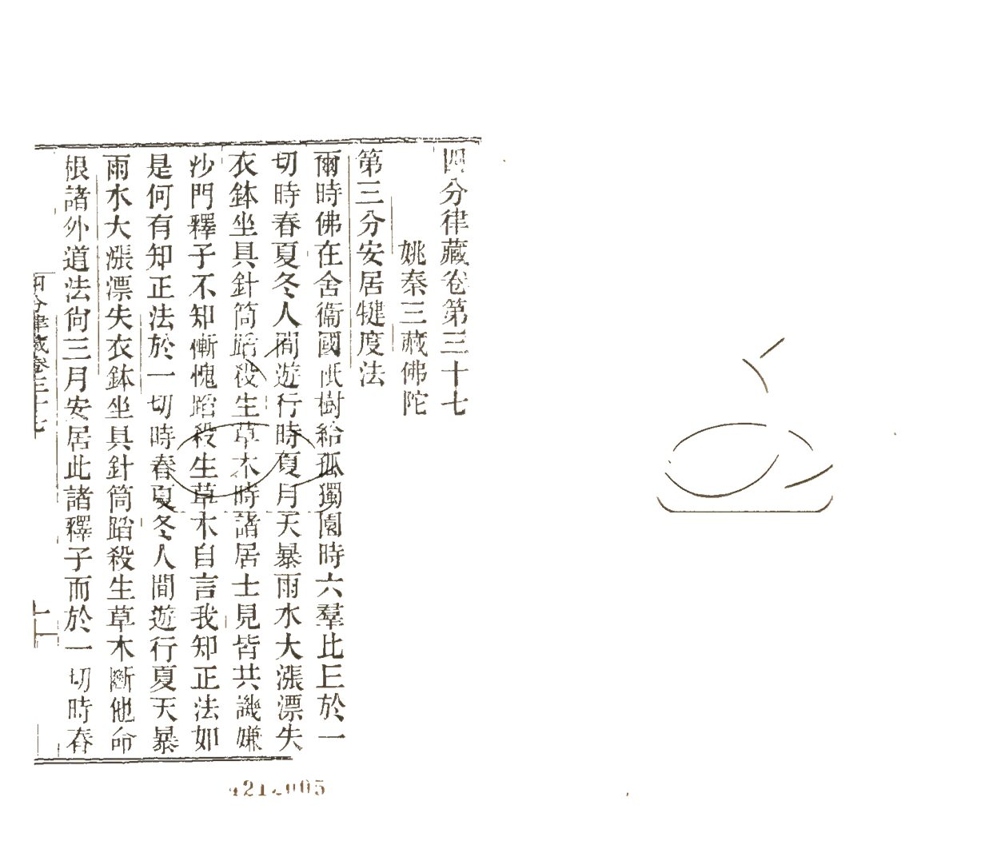 四分律藏卷第三十七
姚秦三藏佛陀
第三分安居犍度法
爾時佛在舍衞國祇樹給孤獨園時六羣比丘於一
切時春夏冬人間遊行時夏月天暴雨水大漲漂失
衣鉢坐具針筒蹈殺生草木時諸居士見皆共譏嫌
沙門釋子不知慚愧蹈殺生草木自言我知正法如
是何有知正法於一切時春夏冬人間遊行夏天暴
雨水大漲漂失衣鉢坐具針筒蹈殺生草木斷他命
根諸外道法尙三月安居此諸釋子而於一切時春
四分律藏卷三十七